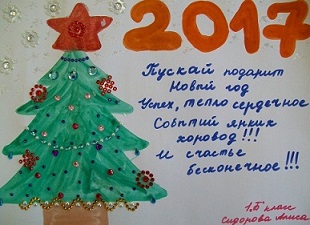 2017
Пускай подарит
Новый год
Успех, тепло сердечное
Событий ярких
хоровод!!!
И счастье
бесконечное!!!
1.Б класс
Сидорова Алиса